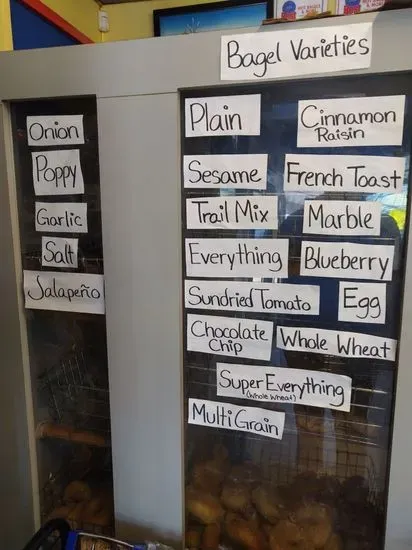 Bagel Varieties
Onion
Poppy
Garlic
Salt
Jalapeño
Plain
Cinnamon
Raisin
Sesame
French Toast
Trail Mix
Marble
Everything
Blueberry
Sundried Tomato
Egg
Chocolate
Chip
Whole Wheat
Super Everything
(Whole Wheat)
Multi Grain